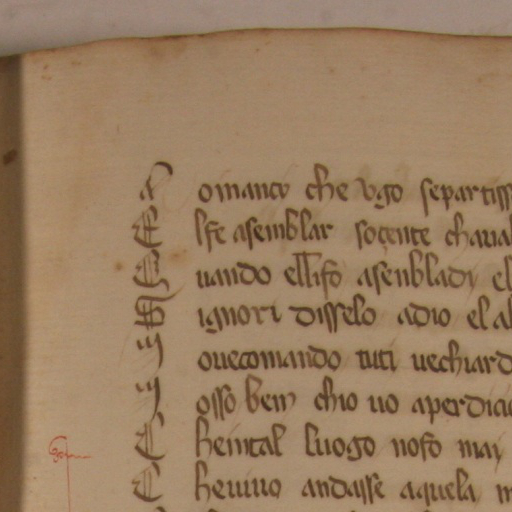 A omanco che Ugo separtiss
E lfe asemblar soçente chaual
Q uando ellifo asenbladi el
S ignori disselo adio el al
I ouecomando tuti uechiard
I osso bem chio uo aperdicio
C heintal luogo nofo may
C heuiuo andasse aquela m